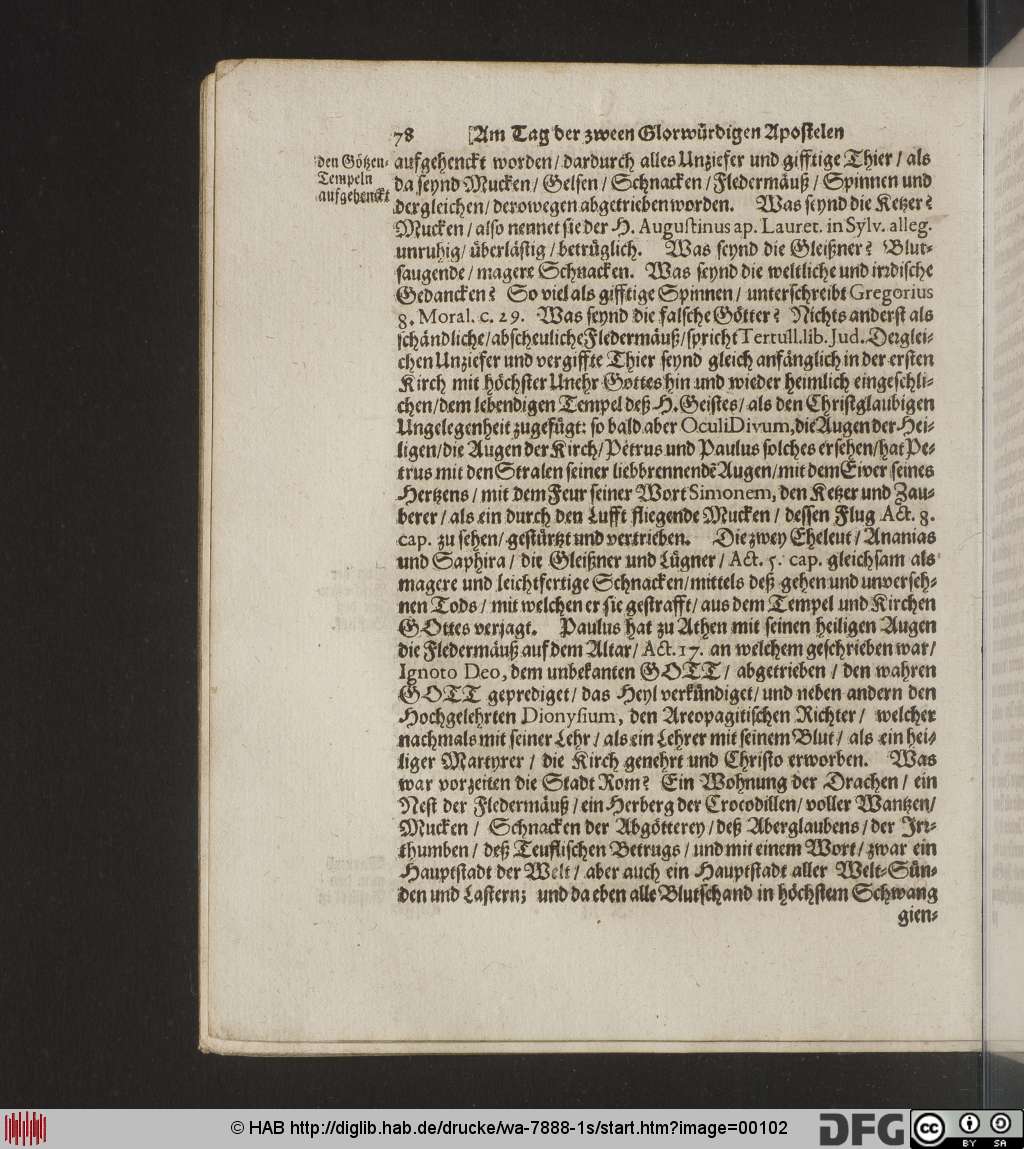 78 [Am Tag der zween Glorwürdigen Apostelen
den Götzen-
Tempeln
aufgehenckt
aufgehenckt worden/ dardurch alles Unziefer und gifftige Thier/ als
da seynd Mucken/ Gelsen/ Schnacken/ Fledermäuß/ Spinnen und
dergleichen/ derowegen abgetrieben worden. Was seynd die Ketzer?
Mucken/ also nennet sie der H. Augustinus ap. Lauret. in Sylv. alleg.
unruhig/ überlästig/ betrüglich. Was seynd die Gleißner? Blut-
saugende/ magere Schnacken. Was seynd die weltliche und irrdische
Gedancken? So viel als gifftige Spinnen/ unterschreibt Gregorius
8. Moral. c. 29. Was seynd die falsche Götter? Nichts anderst als
schändliche/ abscheuliche Fledermäuß/ spricht Tertull. lib. Jud. Derglei-
chen Unziefer und vergiffte Thier seynd gleich anfänglich in der ersten
Kirch mit höchster Unehr Gottes hin und wieder heimlich eingeschli-
chen/ dem lebendigen Tempel deß H. Geistes/ als den Christglaubigen
Ungelegenheit zugefügt: so bald aber Oculi Divum, die Augen der Hei-
ligen/ die Augen der Kirch/ Petrus und Paulus solches ersehen/ hat Pe-
trus mit den Stralen seiner liebbrennendē Augen/ mit dem Eiver seines
Hertzens/ mit dem Feur seiner Wort Simonem, den Ketzer und Zau-
berer/ als ein durch den Lufft fliegende Mucken/ dessen Flug Act. 8.
cap. zu sehen/ gestürtzt und vertrieben. Die zwey Eheleut/ Ananias
und Saphira/ die Gleißner und Lügner/ Act. 5. cap. gleichsam als
magere und leichtfertige Schnacken/ mittels deß gehen und unverseh-
nen Tods/ mit welchen er sie gestrafft/ aus dem Tempel und Kirchen
GOttes verjagt. Paulus hat zu Athen mit seinen heiligen Augen
die Fledermäuß auf dem Altar/ Act. 17. an welchem geschrieben war/
Ignoto Deo, dem unbekanten GOTT/ abgetrieben/ den wahren
GOTT geprediget/ das Heyl verkündiget/ und neben andern den
Hochgelehrten Dionysium, den Areopagitischen Richter/ welcher
nachmals mit seiner Lehr/ als ein Lehrer mit seinem Blut/ als ein hei-
liger Martyrer/ die Kirch genehrt und Christo erworben. Was
war vorzeiten die Stadt Rom? Ein Wohnung der Drachen/ ein
Nest der Fledermäuß/ ein Herberg der Crocodillen/ voller Wantzen/
Mucken/ Schnacken der Abgötterey/ deß Aberglaubens/ der Irr-
thumben/ deß Teuflischen Betrugs/ und mit einem Wort/ zwar ein
Hauptstadt der Welt/ aber auch ein Hauptstadt aller Welt-Sün-
den und Lastern; und da eben alle Blutschand in höchstem Schwang
gien-
© HAB http://diglib.hab.de/drucke/wa-7888-1s/start.htm?image=00102
DFG
cc
BY SA